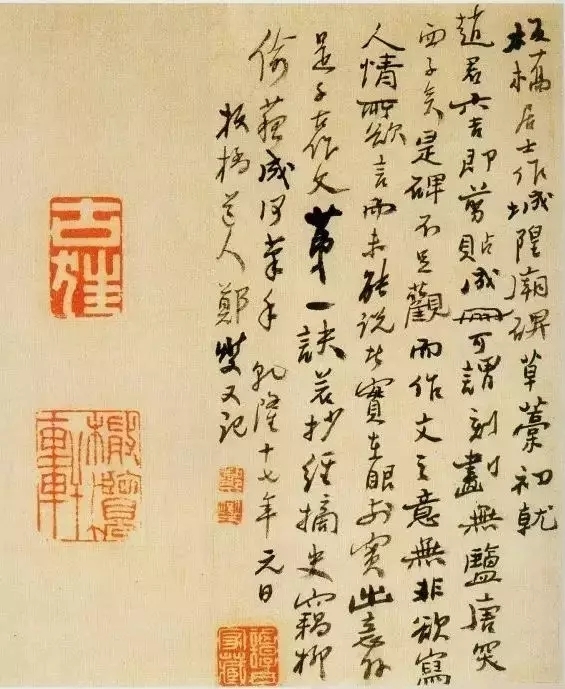 板橋居士作城隍廟碑草藁初就
趙君六吉即剪貼成冊可謂刻畫無鹽唐突
西子矣是碑不足觀而作文之意無非欲寫
人情所欲言而未能說此實在眼前實出意外
是千古作文第一訣若抄經摘史竊柳
偷蘇成何筆手 乾隆十七年元日
板橋道人鄭燮又記